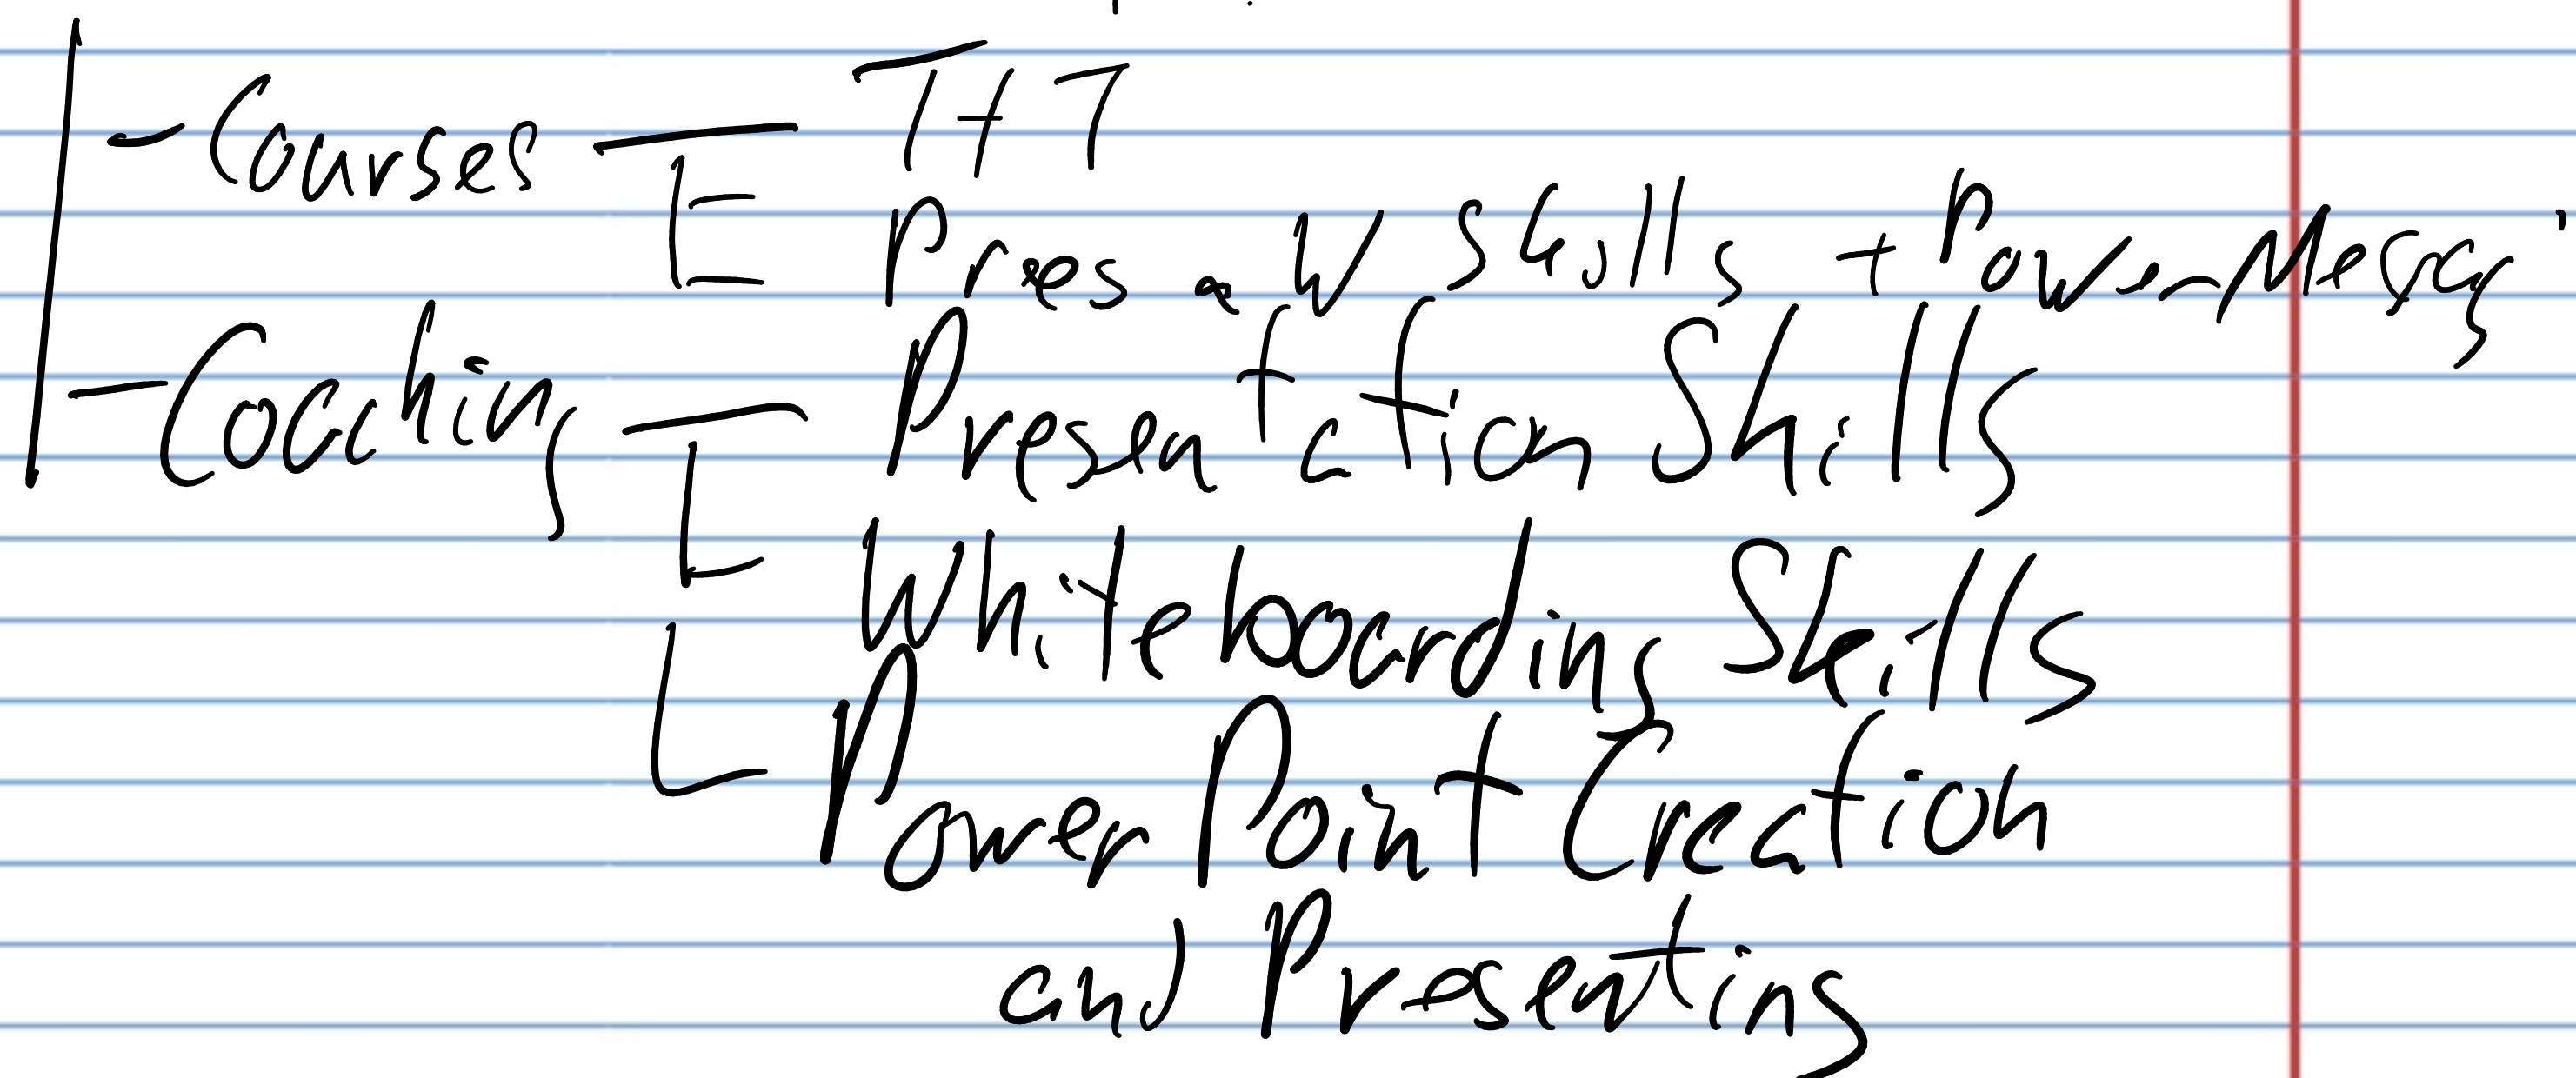 - Courses - T+T
Pres W Skills + Power
- Coaching - Presentation Skills
Whiteboarding Skills
PowerPoint Creation
and Presenting